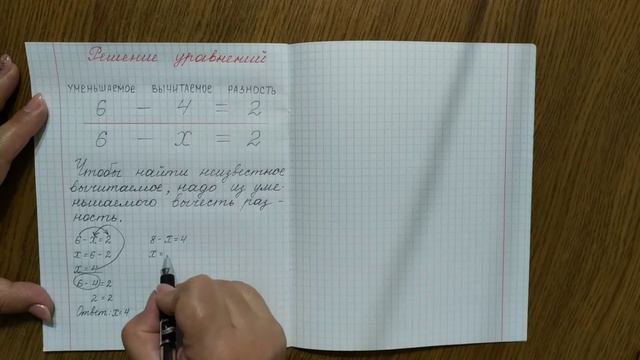 Решение уравнений
УМЕНЬШАЕМОЕ ВЫЧИТАЕМОЕ РАЗНОСТЬ
6 - 4 = 2
6 - x = 2
Чтобы найти неизвестное
вычитаемое, надо из уме-
ньшаемого вычесть раз-
ность.
6 - x = 2
x = 6 - 2
x = 4
6 - 4 = 2
2 = 2
Ответ: x=4
8 - x = 4
x =